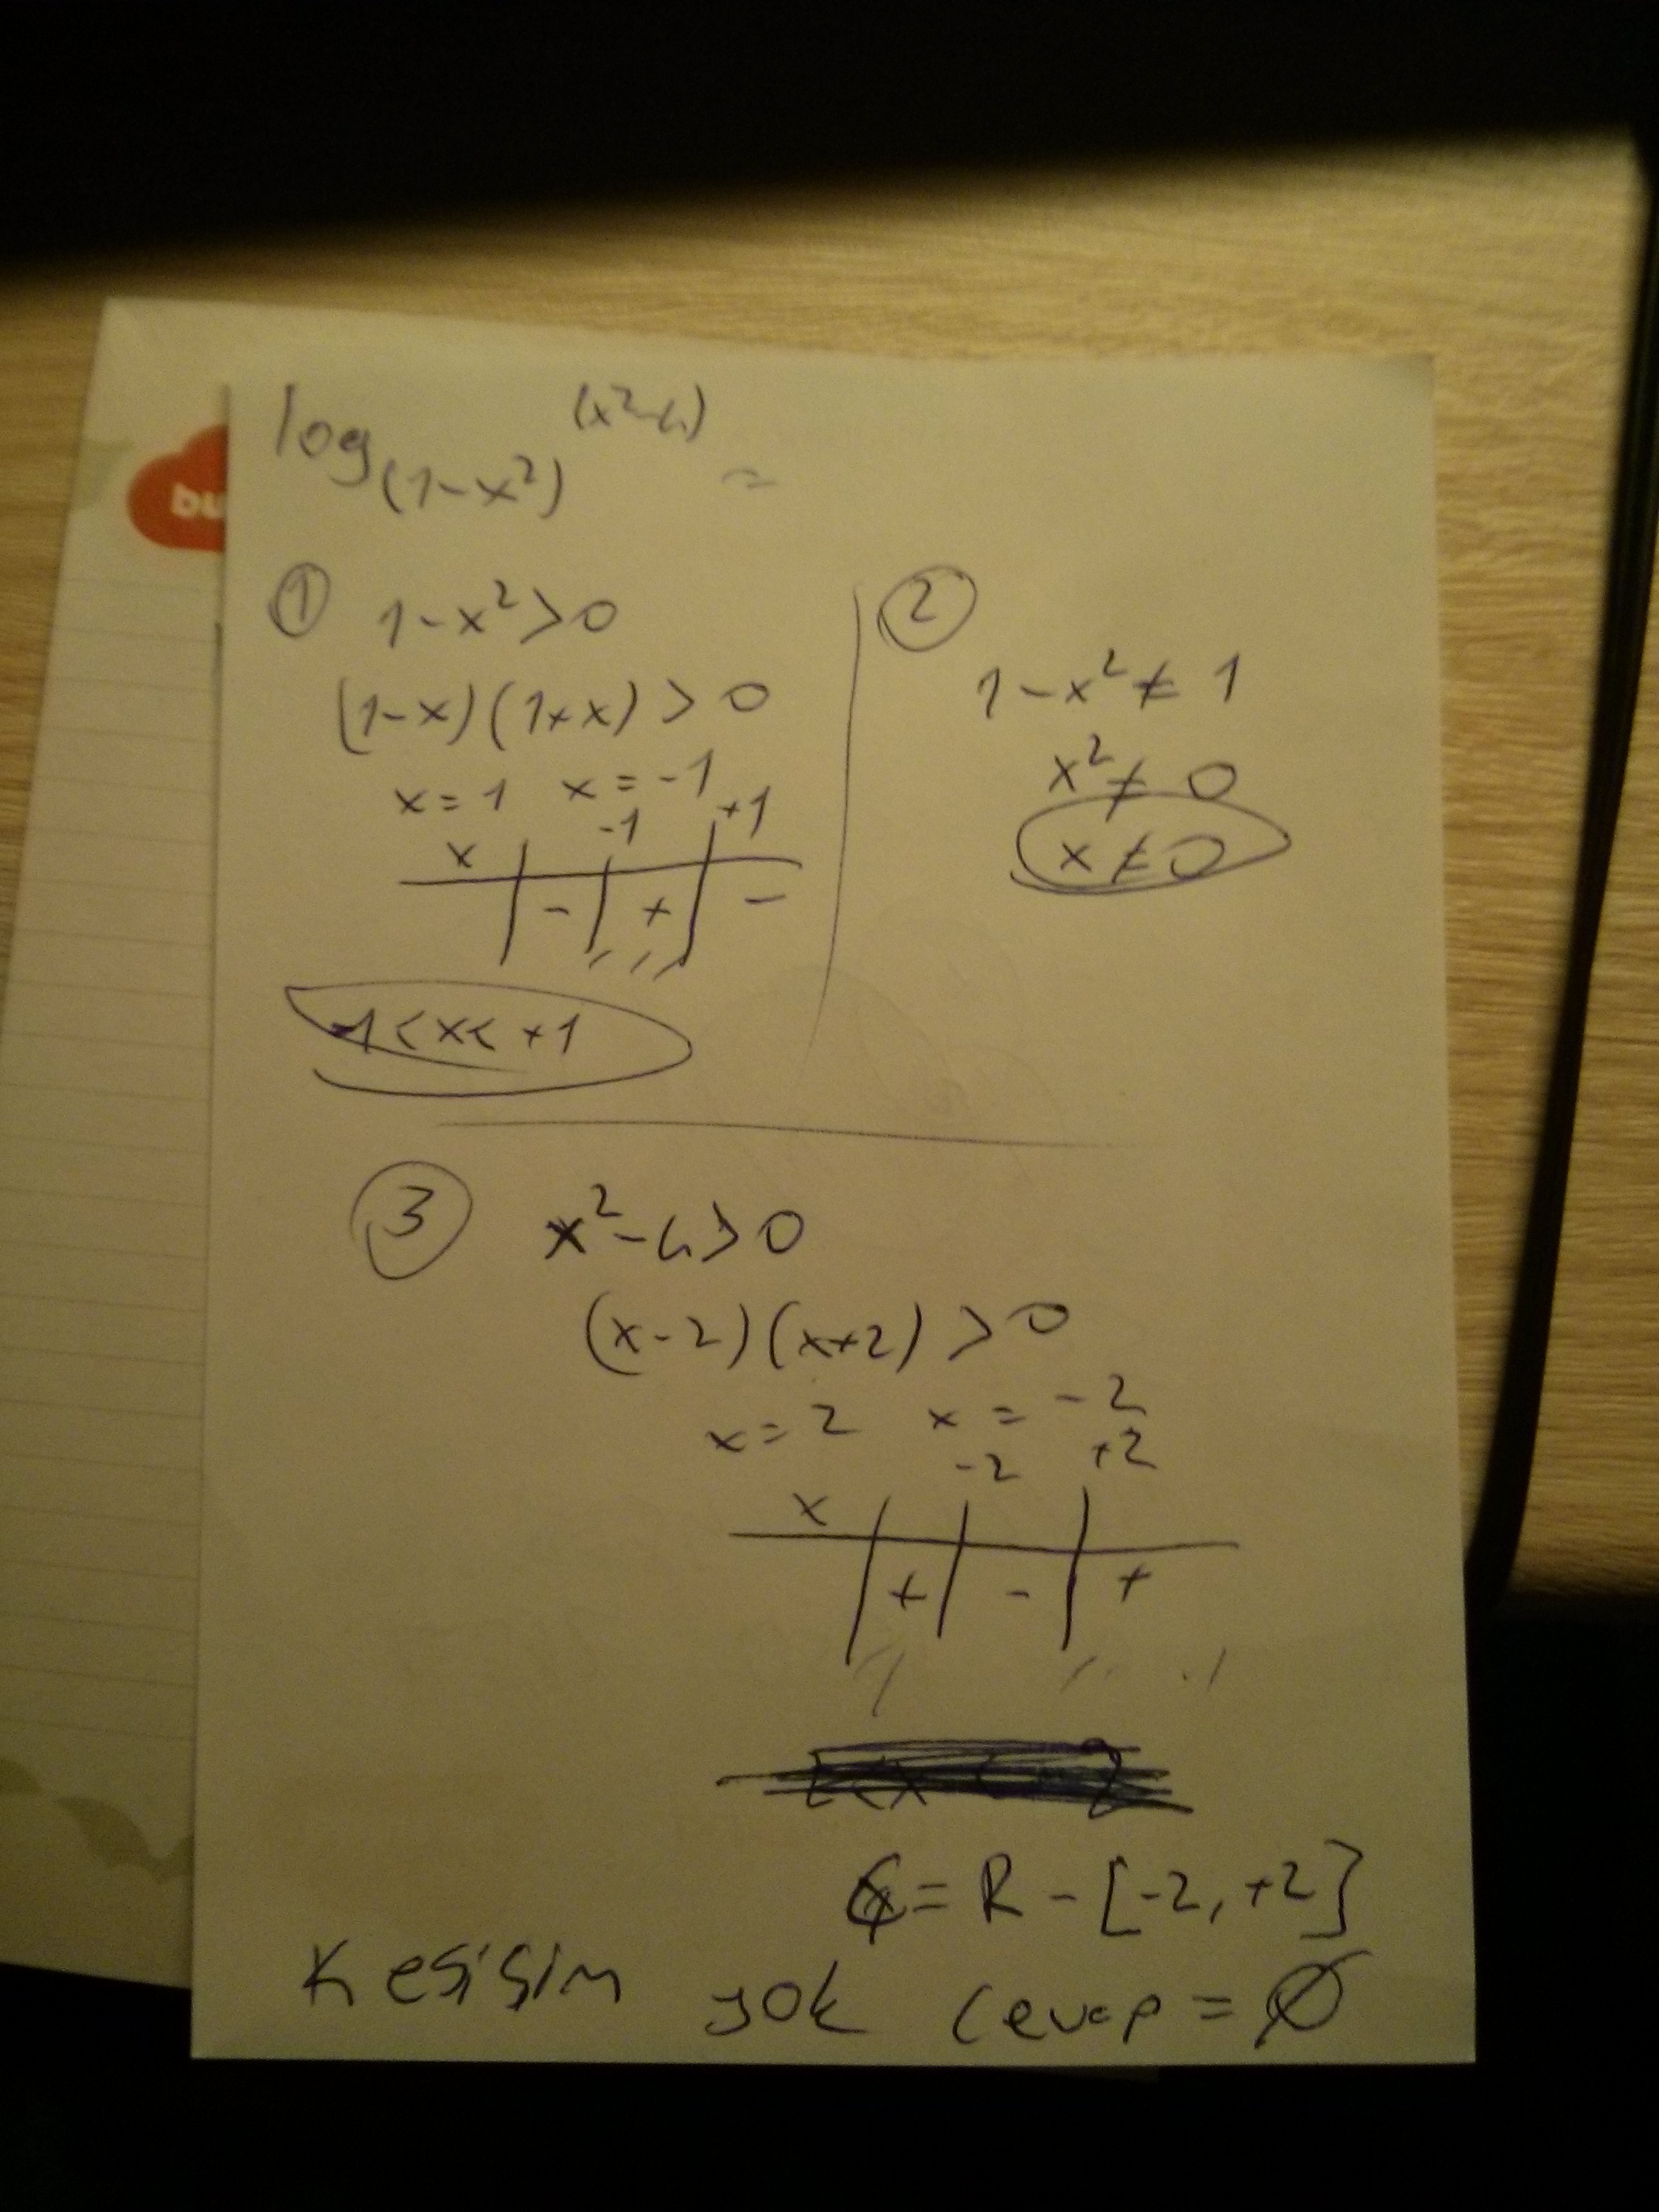 log₍₁₋ₓ²₎ (x²-4) =
bu
① 1-x²>0
(1-x)(1+x)>0
x=1 x=-1
-1 +1
x
- + -
-1<x<+1
②
1-x²≠1
x²≠0
x≠0
③ x²-4>0
(x-2)(x+2)>0
x=2 x=-2
-2 +2
x
+ - +
Ç=R-[-2,+2]
Kesişim yok Cevap=∅